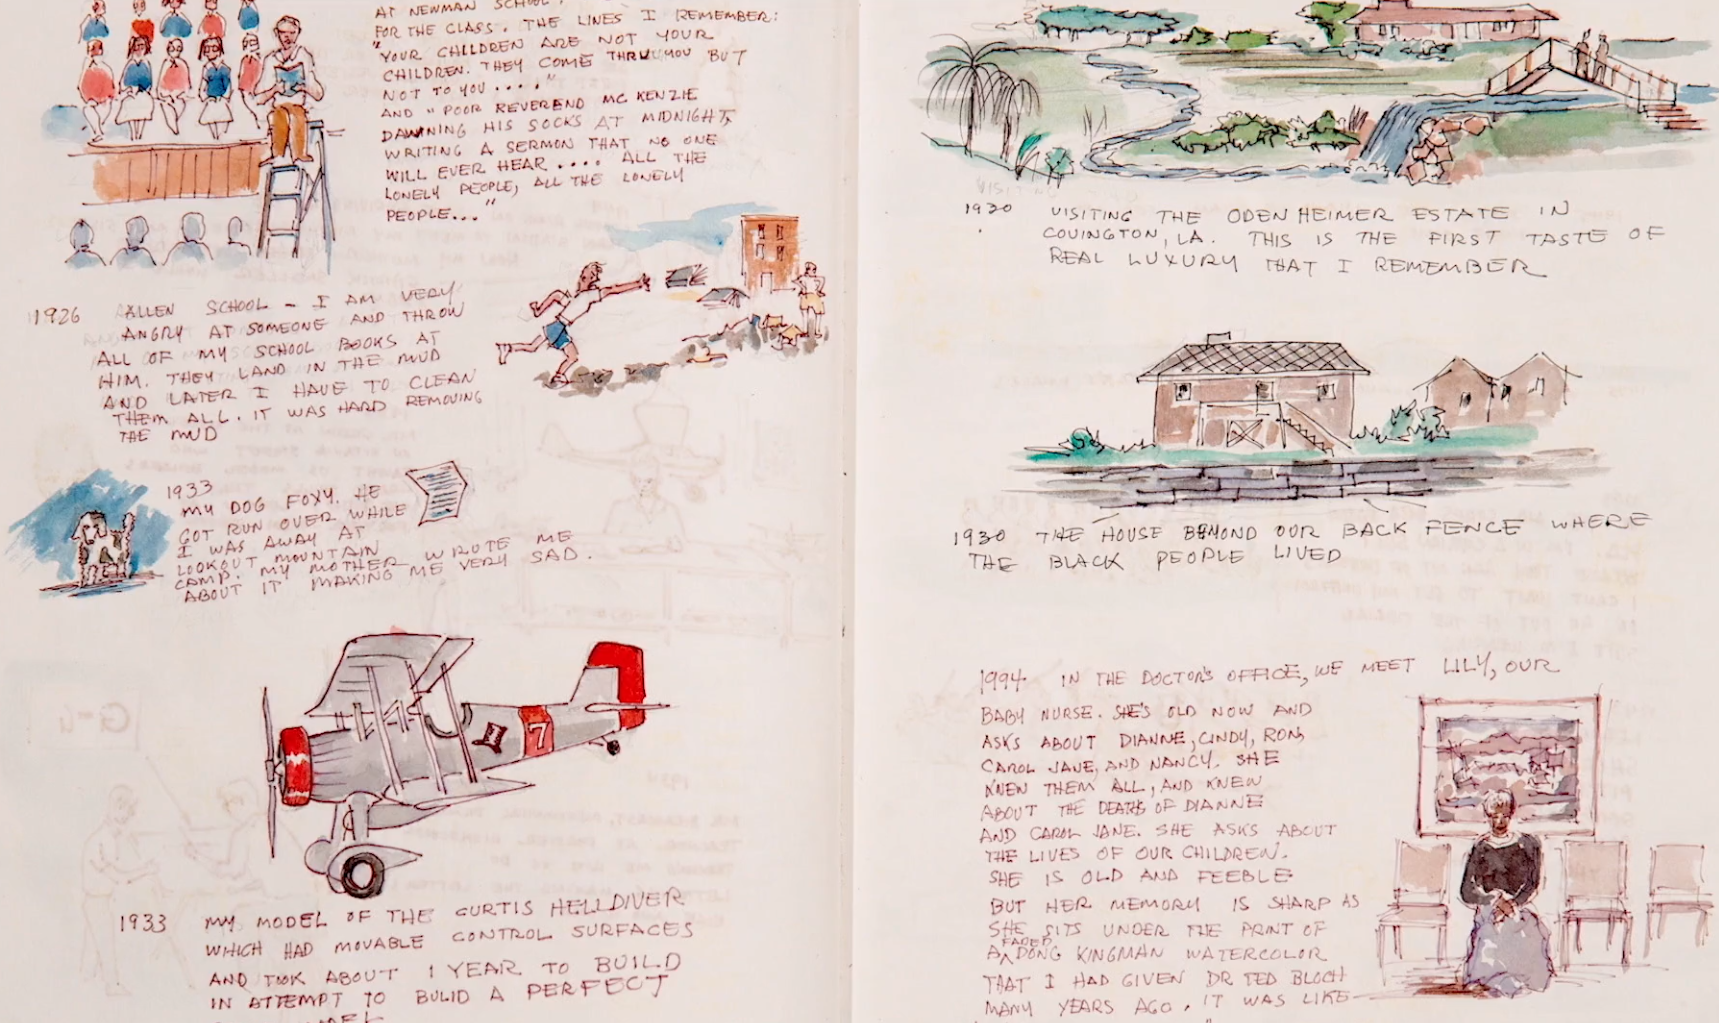 AT NEWMAN SCHOOL.
FOR THE CLASS. THE LINES I REMEMBER:
"YOUR CHILDREN ARE NOT YOUR
CHILDREN. THEY COME THRU YOU BUT
NOT TO YOU...."
AND "POOR REVEREND MC KENZIE
DAWNING HIS SOCKS AT MIDNIGHT,
WRITING A SERMON THAT NO ONE
WILL EVER HEAR .... ALL THE
LONELY PEOPLE, ALL THE LONELY
PEOPLE..."
1926 ALLEN SCHOOL - I AM VERY
ANGRY AT SOMEONE AND THROW
ALL OF MY SCHOOL BOOKS AT
HIM. THEY LAND IN THE MUD
AND LATER I HAVE TO CLEAN
THEM ALL. IT WAS HARD REMOVING
THE MUD
1933
MY DOG FOXY. HE
GOT RUN OVER WHILE
I WAS AWAY AT
LOOKOUT MOUNTAIN
CAMP. MY MOTHER WROTE ME
ABOUT IT MAKING ME VERY SAD.
7
1933 MY MODEL OF THE CURTIS HELLDIVER
WHICH HAD MOVABLE CONTROL SURFACES
AND TOOK ABOUT 1 YEAR TO BUILD
IN ATTEMPT TO BULID A PERFECT
1930 VISITING THE ODENHEIMER ESTATE IN
COVINGTON, LA. THIS IS THE FIRST TASTE OF
REAL LUXURY THAT I REMEMBER
1930 THE HOUSE BEYOND OUR BACK FENCE WHERE
THE BLACK PEOPLE LIVED
1994 IN THE DOCTOR'S OFFICE, WE MEET LILY, OUR
BABY NURSE. SHE'S OLD NOW AND
ASKS ABOUT DIANNE, CINDY, RON,
CAROL JANE, AND NANCY. SHE
KNEW THEM ALL, AND KNEW
ABOUT THE DEATHS OF DIANNE
AND CAROL JANE. SHE ASKS ABOUT
THE LIVES OF OUR CHILDREN.
SHE IS OLD AND FEEBLE
BUT HER MEMORY IS SHARP AS
SHE SITS UNDER THE PRINT OF
A FADED DONG KINGMAN WATERCOLOR
THAT I HAD GIVEN DR TED BLOCH
MANY YEARS AGO. IT WAS LIKE